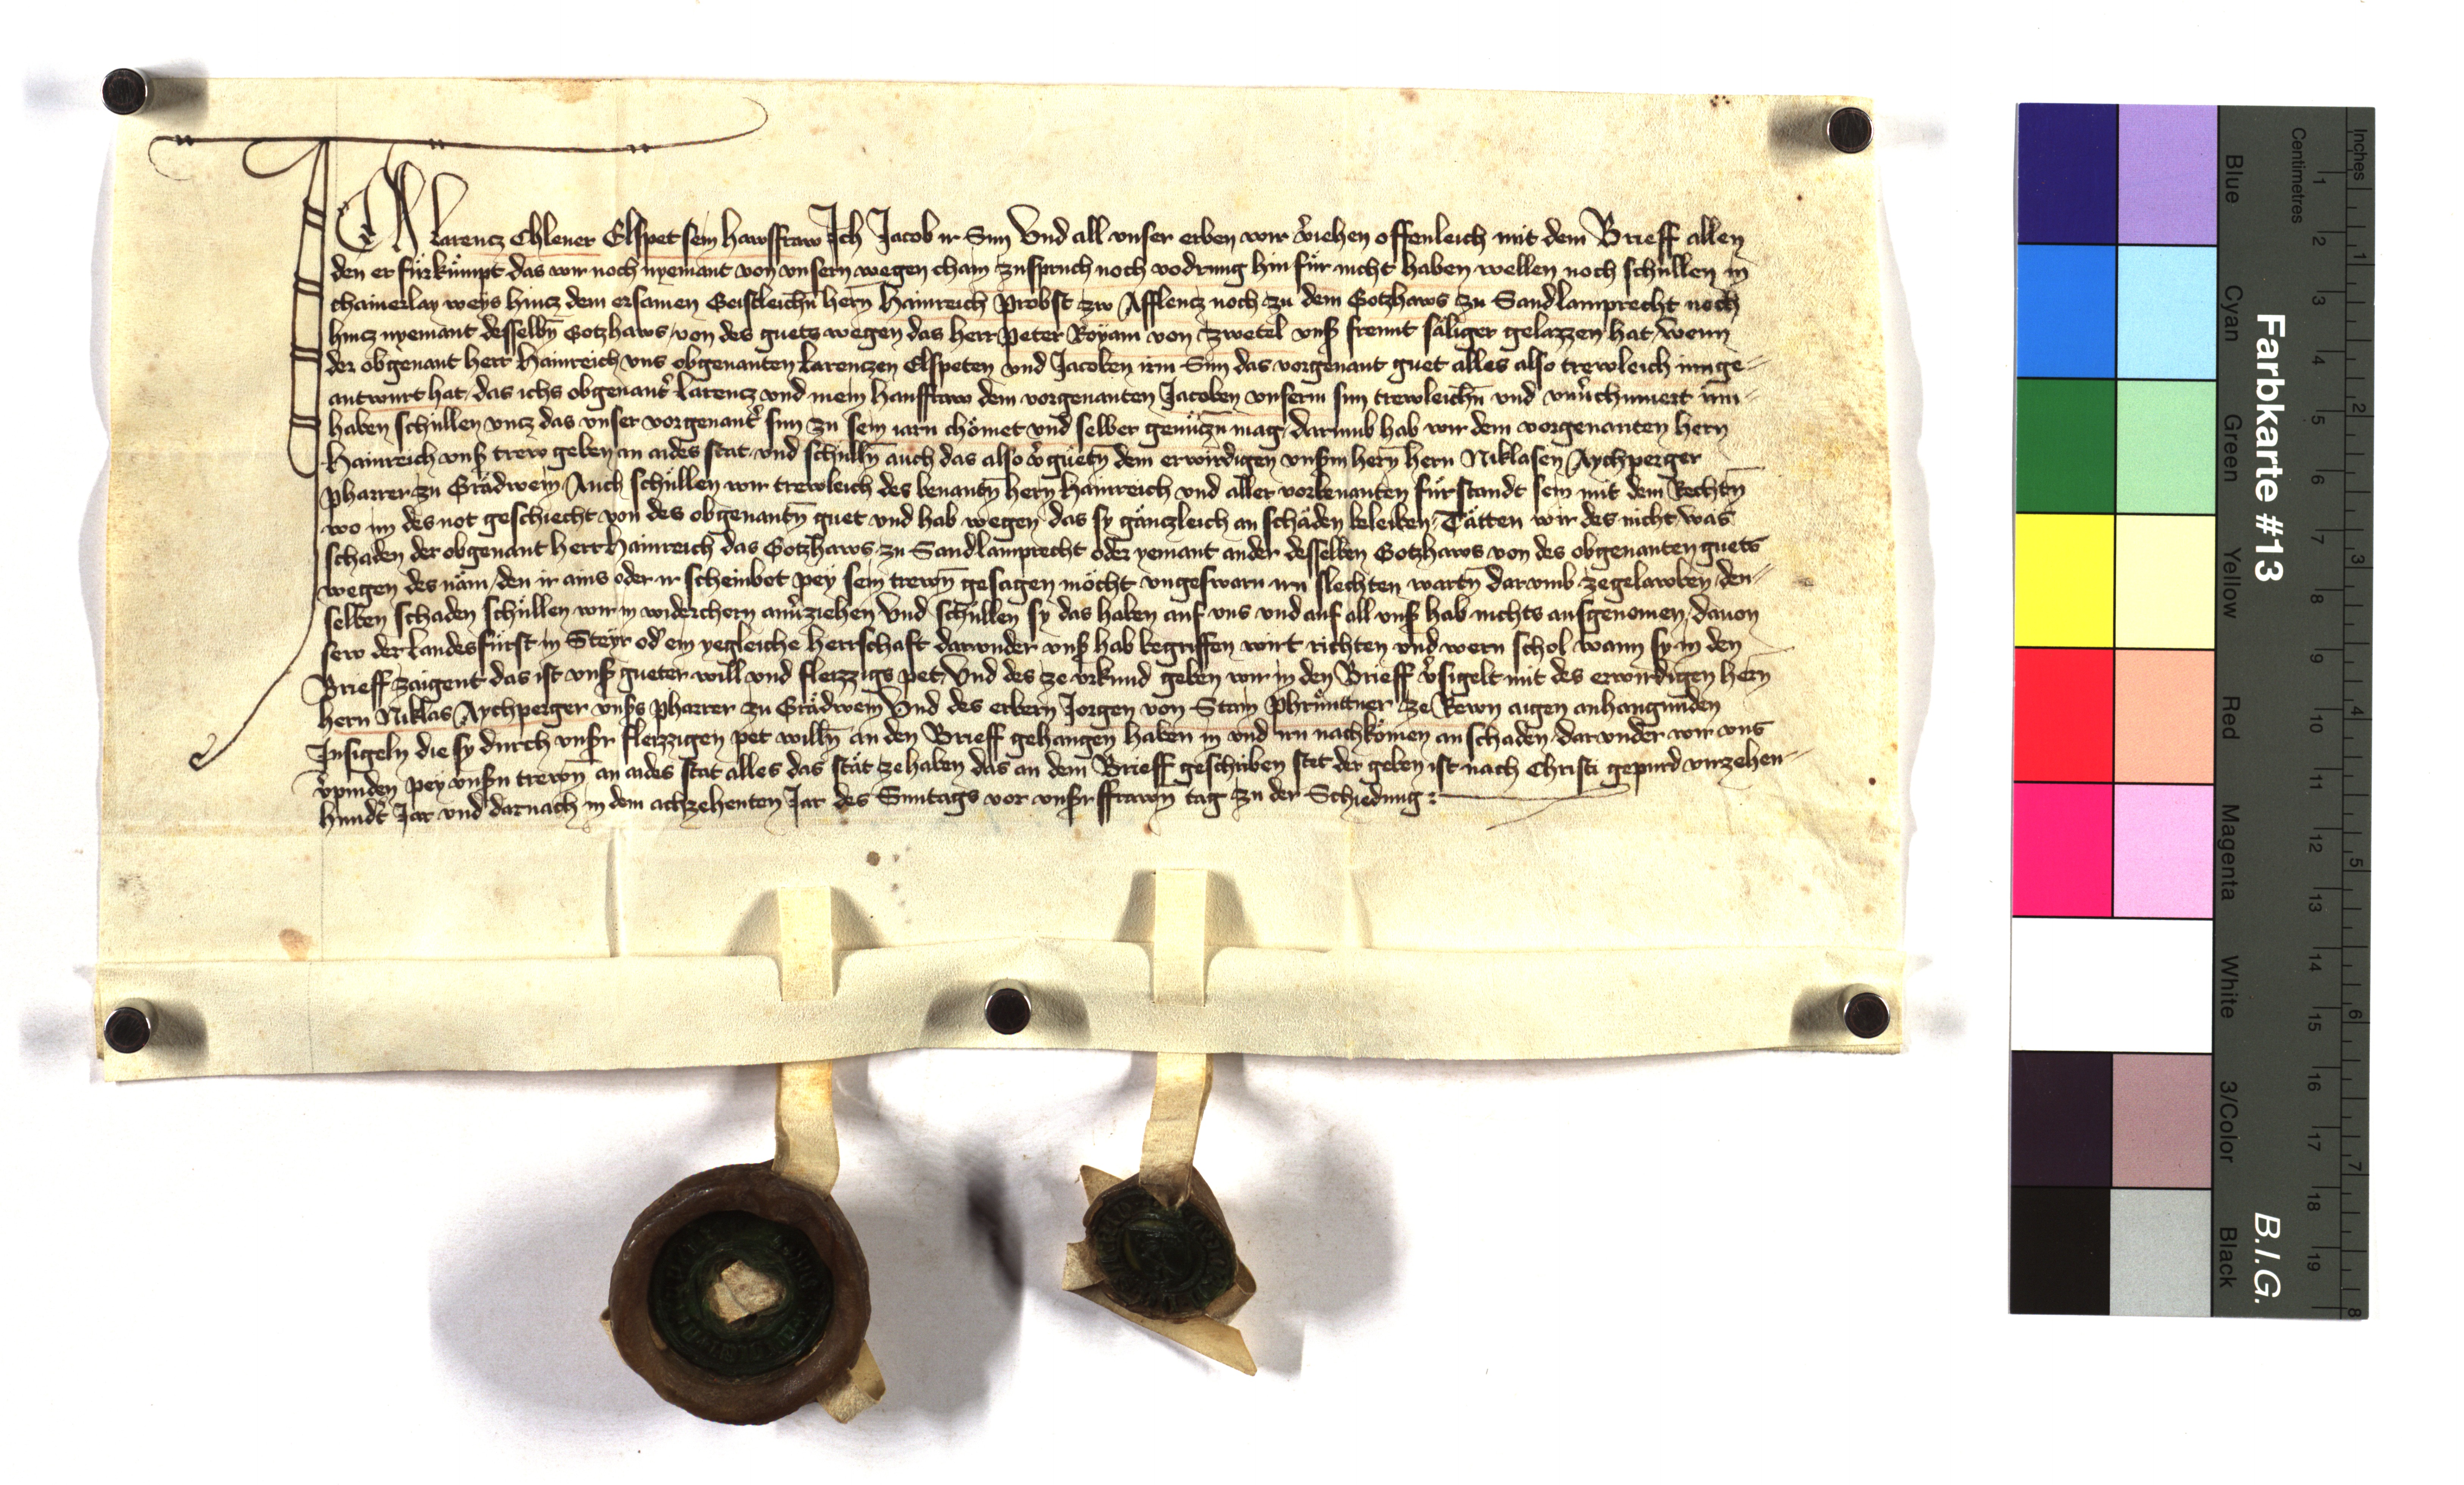 Ich Larencz Chlener Elspet sein hawsfraw Ich Jacob ir Sun Und all unser erben wir v̾iehen offenleich mit dem Brieff allen
den er fürkümpt das wir noch nyemant von unsern wegen chain zuspruch noch vodrung hinfür nicht haben wellen noch schüllen in
chainerlay weys hincz dem ersamen Geistleichn̄ hern Hainreich Probst zw Afflencz noch zu dem Gotzhaws zu Sandlamprecht noch
hincz nyemant desselbn̄ Gotzhaws von des guets wegen das herr Peter Royam von Zwetel uns̾ freunt säliger gelazzen hat wenn
der obgenant herr Hainreich uns obgenanten Larenczen Elspeten und Jacoben irm Sun das vorgenant guet alles also trewleich innge-
antwurt hat das ichs obgenant̾ Larencz und mein hausfraw dem vorgenanten Jacoben unserm sun trewleichn̄ und unv̾chumert inn-
haben schüllen uncz das unser vorgenant̾ sun zu sein iarn chömet und selber genüczn̄ mag darumb hab wir dem vorgenanten hern
Hainreich uns̾ trew geben an aides stat und schülln̄ auch das also v̾güetn̄ dem erwirdigen uns̾m hern hern Niklasen Aychperger
Pharrer zu Grädwein Auch schüllen wir trewleich des benantn̄ hern Hainreich und aller vorbenanten fürstandt sein mit dem Rechtn̄
wo im des not geschiecht von des obgenantn̄ guet und hab wegen das sy gänczleich an schäden beleiben Tätten wir des nicht was
schaden der obgenant herr Hainreich das Gotzhaws zu Sandlamprecht oder yemant ander desselben Gotzhaws von des obgenanten guets
wegen des näm den ir ains oder ir scheinbot pey sein trewn̄ gesagen möcht ungeswarn irn slechten wartn̄ darumb zegelawben den-
selben schaden schüllen wir in widerchern an v̾ziehen Und schüllen sy das haben auf uns und auf all uns̾ hab nichts ausgenomen davon
sew der Landesfürst in Steyr od̾ ein yegleiche herrschaft darunder uns̾ hab begriffen wirt richten und wern schol wann sy in den
Brieff zaigent das ist uns̾ gueter will und fleizzigs pet Und des ze urkund geben wir in den Brieff v̾sigelt mit des erwirdigen hern
hern Niklas Aychperger uns̾s pharrer zu Grädwein Und des erbern Jorgen von Stain Phrünttner ze Rewn aigen anhangunden
Insigeln die sy durch uns̾r fleizzigen pet willn̄ an den Brieff gehangen haben in und irn nachkömen an schaden darunder wir uns
v̾pinden pey uns̾n trewn̄ an aides stat alles das stät zehaben das an dem Brieff geschriben stet der geben ist nach Christi gepurd virzehen-
hund̾t Jar und darnach in dem achzehenten Jar des Suntags vor uns̾r ffrawn̄ tag zu der Schiedung
Farbkarte #13
B.I.G.
Inches
Centimetres
1 2 3 4 5 6 7 8 9 10 11 12 13 14 15 16 17 18 19
1 2 3 4 5 6 7 8
Blue
Cyan
Green
Yellow
Red
Magenta
White
3/Color
Black